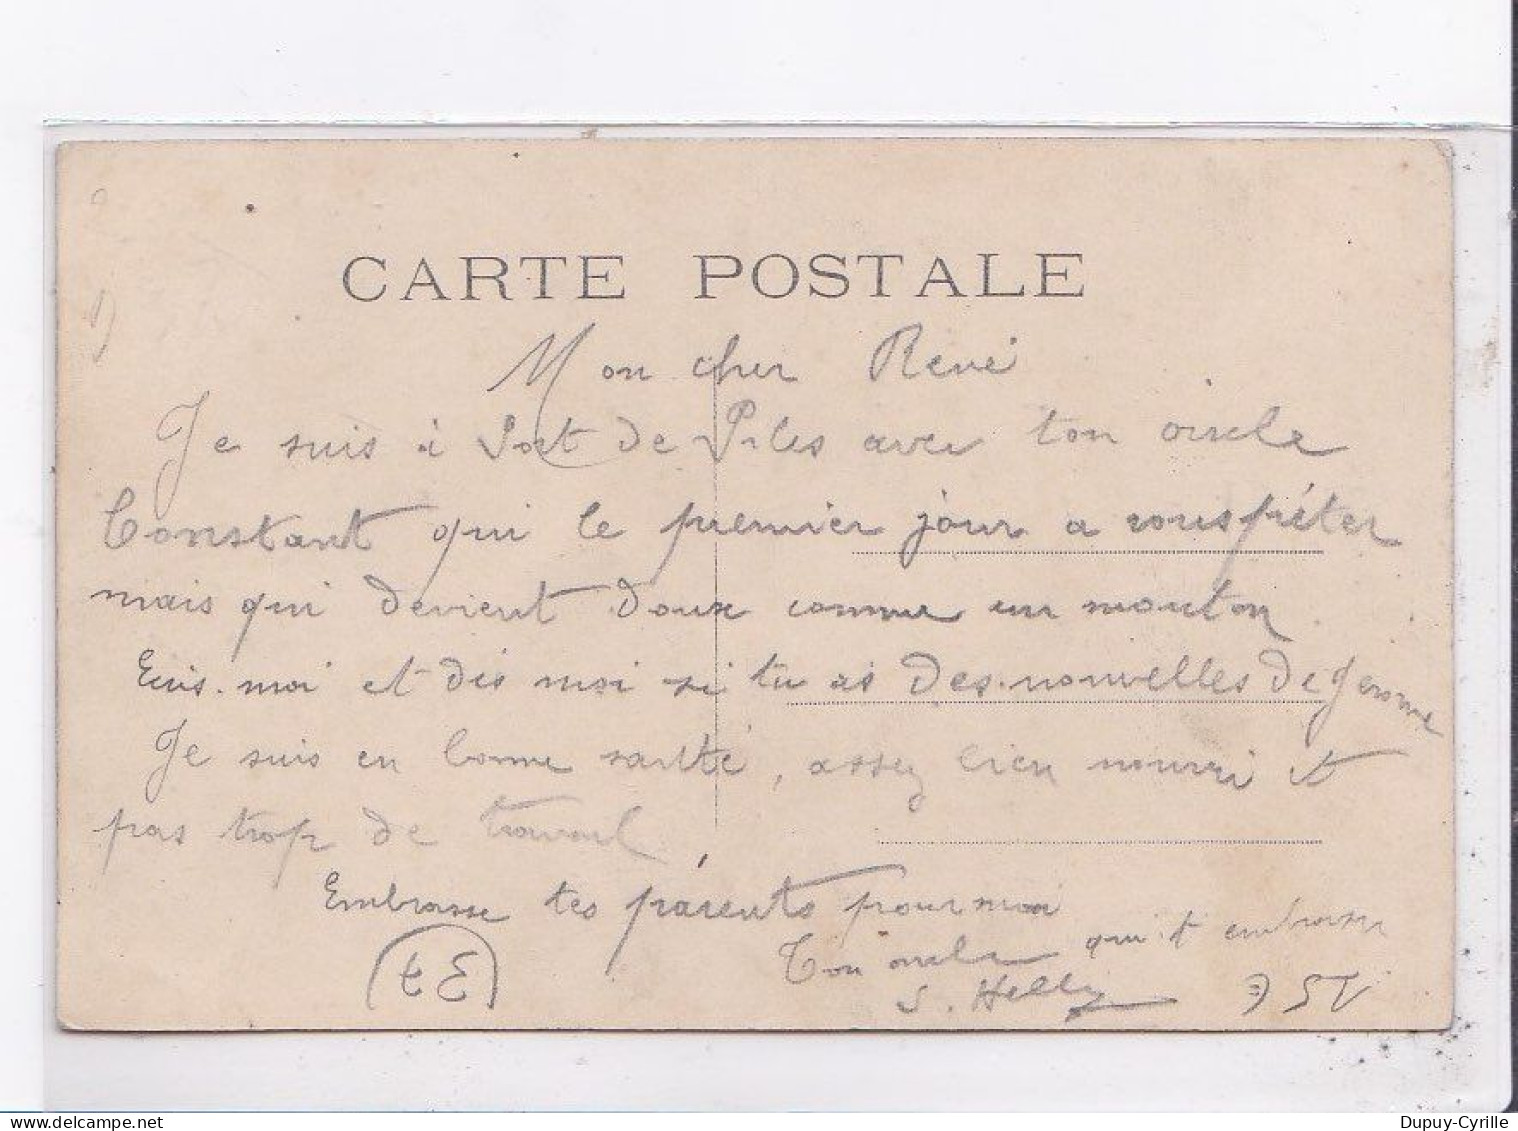 CARTE POSTALE
Mon cher René
Je suis à Port de Piles avec ton oncle
Constant qui le premier jour a rouspéter
mais qui devient doux comme un mouton
Ecris-moi et dis moi si tu as des nouvelles de Jerome
Je suis en bonne santté, assez bien nourri et
pas trop de travail,
Embrasse tes parents pour moi
Ton oncle qui t'embrasse
S. Helly
Dupuy-Cyrille
delcampe.net